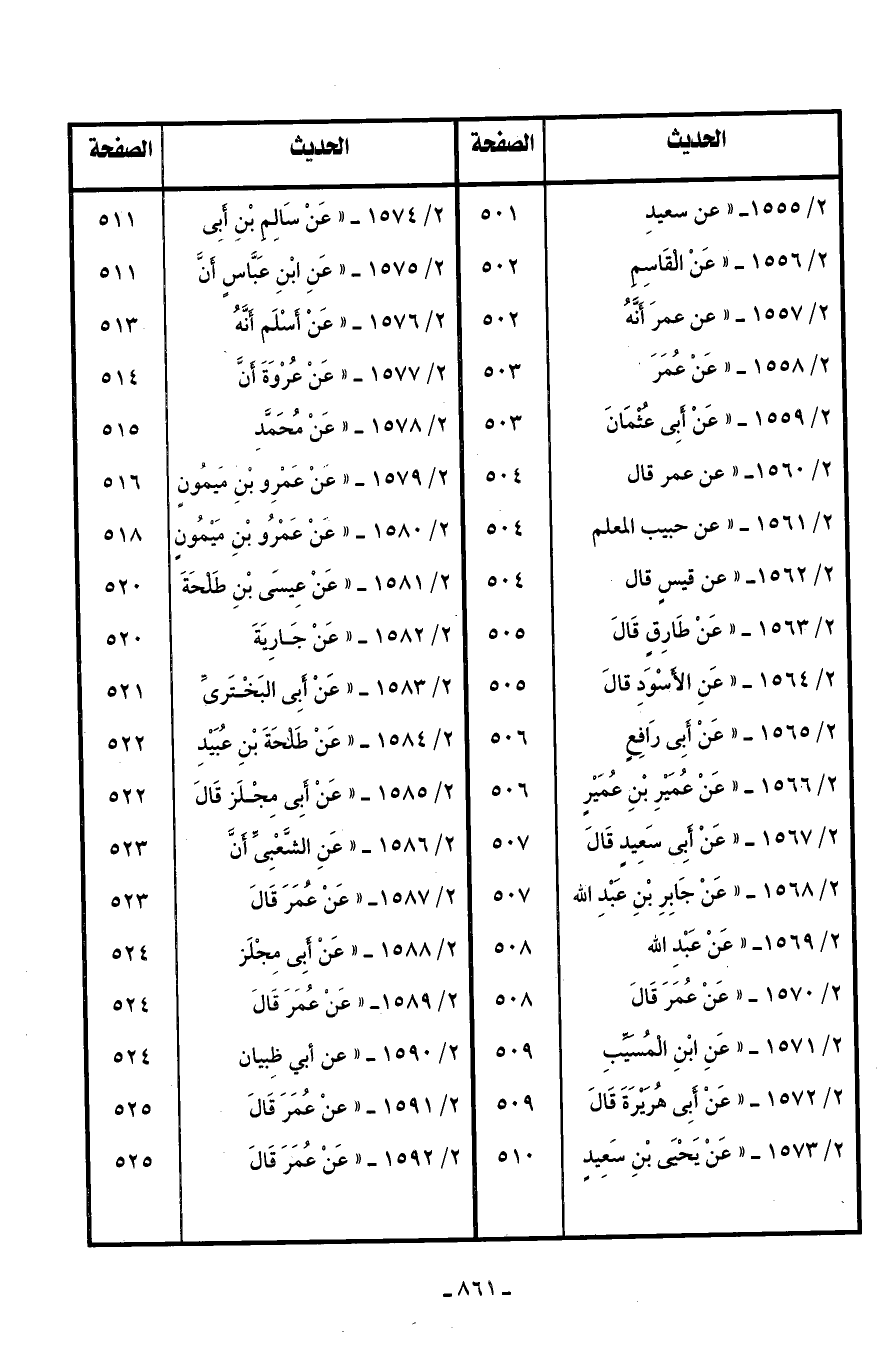 الحديث الصفحة الحديث الصفحة
٢/ ١٥٥٥ـ « عن سعيدِ ٥٠١
٢/ ١٥٥٦ ـ « عَنْ الْقَاسِمِ ٥٠٢
٢/ ١٥٥٧ ـ « عن عمرَ أَنَّهُ ٥٠٢
٢/ ١٥٥٨ ـ « عَنْ عُمَرَ ٥٠٣
٢/ ١٥٥٩ ـ « عَنْ أَبِى عُثْمَانَ ٥٠٣
٢/ ١٥٦٠ـ « عن عمر قال ٥٠٤
٢/ ١٥٦١ ـ « عن حبيب المعلم ٥٠٤
٢/ ١٥٦٢ـ « عن قيسٍ قال ٥٠٤
٢/ ١٥٦٣ ـ « عَنْ طَارِقٍ قَالَ ٥٠٥
٢/ ١٥٦٤ ـ « عَنِ الأَسْوَدِ قالَ ٥٠٥
٢/ ١٥٦٥ ـ « عَنْ أَبِى رَافِعٍ ٥٠٦
٢/ ١٥٦٦ ـ « عَنْ عُمَيْرِ بْنِ عُمَيْرٍ ٥٠٦
٢/ ١٥٦٧ ـ « عَنْ أَبِى سَعِيدٍ قَالَ ٥٠٧
٢/ ١٥٦٨ ـ « عَنْ جَابِرِ بْنِ عَبْدِ الله ٥٠٧
٢/ ١٥٦٩ـ « عَنْ عَبْدِ الله ٥٠٨
٢/ ١٥٧٠ ـ « عَنْ عُمَرَ قَالَ ٥٠٨
٢/ ١٥٧١ ـ « عَنِ ابْنِ الْمُسَيِّبِ ٥٠٩
٢/ ١٥٧٢ ـ « عَنْ أَبِى هُرَيْرَةَ قَالَ ٥٠٩
٢/ ١٥٧٣ ـ « عَنْ يَحْيَى بْنِ سَعِيدٍ ٥١٠
٢/ ١٥٧٤ ـ « عَنْ سَالِمِ بْنِ أَبِى ٥١١
٢/ ١٥٧٥ ـ « عَنِ ابْنِ عَبَّاسٍ أَنَّ ٥١١
٢/ ١٥٧٦ ـ « عَنْ أَسْلَم أَنَّهُ ٥١٣
٢/ ١٥٧٧ ـ « عَنْ عُرْوَةَ أَنَّ ٥١٤
٢/ ١٥٧٨ ـ « عَنْ مُحَمَّدِ ٥١٥
٢/ ١٥٧٩ ـ « عَنْ عَمْرِو بْنِ مَيمُونٍ ٥١٦
٢/ ١٥٨٠ ـ « عَنْ عَمْرُو بْنِ مَيْمُونٍ ٥١٨
٢/ ١٥٨١ ـ « عَنْ عِيسَى بْنِ طَلْحَةَ ٥٢٠
٢/ ١٥٨٢ ـ « عَنْ جَـارِيَةَ ٥٢٠
٢/ ١٥٨٣ ـ « عَنْ أَبِى البَخْـتَرِىِّ ٥٢١
٢/ ١٥٨٤ ـ « عَنْ طَلْحَةَ بْنِ عُبَيْدِ ٥٢٢
٢/ ١٥٨٥ ـ « عَنْ أَبِى مِجْـلَزٍ قَالَ ٥٢٢
٢/ ١٥٨٦ ـ « عَنِ الشَّعْبِىِّ أَنَّ ٥٢٣
٢/ ١٥٨٧ـ « عَنْ عُمَرَ قَالَ ٥٢٣
٢/ ١٥٨٨ ـ « عَنْ أَبِى مِجْلَزٍ ٥٢٤
٢/ ١٥٨٩ـ « عَنْ عُمَرَ قَالَ ٥٢٤
٢/ ١٥٩٠ ـ « عن أبي ظبيان ٥٢٤
٢/ ١٥٩١ ـ « عنْ عُمَرَ قَالَ ٥٢٥
٢/ ١٥٩٢ ـ « عَنْ عُمَرَ قَالَ ٥٢٥
ـ ٨٦١ ـ